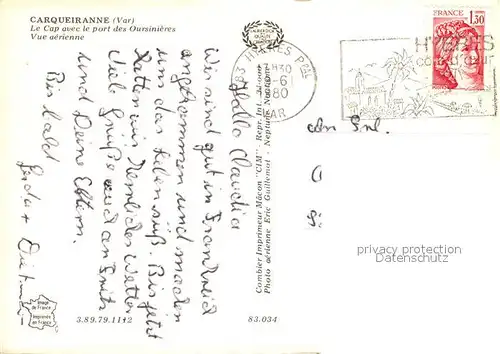 CARQUEIRANNE (Var)
Le Cap avec le port des Oursinières
Vue aérienne
Hallo Claudia
Wir sind gut in Frankreich
angekommen und machen
uns das Leben süß. Bis jetzt
hatten wir herrliches Wetter
Viele Grüße auch an Fritz
und Deine Eltern.
Bis bald
Gerda +
Combier Imprimeur Mâcon "CIM" - Repr. Int.
Photo aérienne Eric Guillemot - Neptune
3.89.79.1112
83.034
Image de France
Imprimée en France
HYERES PPAL
18H30
6
1980
VAR
HYERES
côte d'azur
FRANCE
1,30
An Frl.
privacy protection